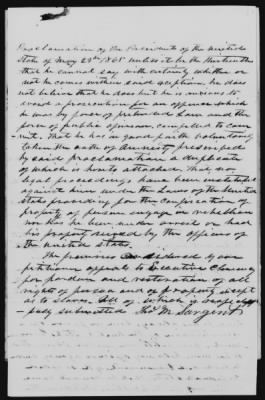 Proclamation of the President of the United
State of May 29th 1865 unless it be the thirteenth
that he cannot say with certainty whether or
not he comes within said exception he does
not believe that he does but he is anxious to
avoid a prosecution for an offence which
he was by force of pretended Law and the
force of public opinion, compelled to com-
mit, that he has in good faith voluntarily
taken the oath of Amnesty prescribed
by said proclamation a duplicate
of which is hereto attached That, no
legal proceedings have been instituted
against him under the Laws of the United
States providing for the confiscation of
property of persons engage in rebellion
nor has he been under arrest or had
his property seized by the officers of
the United States.
The premises considered your
petitioner appeals to Executive Clemency
for pardon and restoration of all
rights of person and of property except
as to slaves All of which is respect-
fully submitted Thos M Sargent